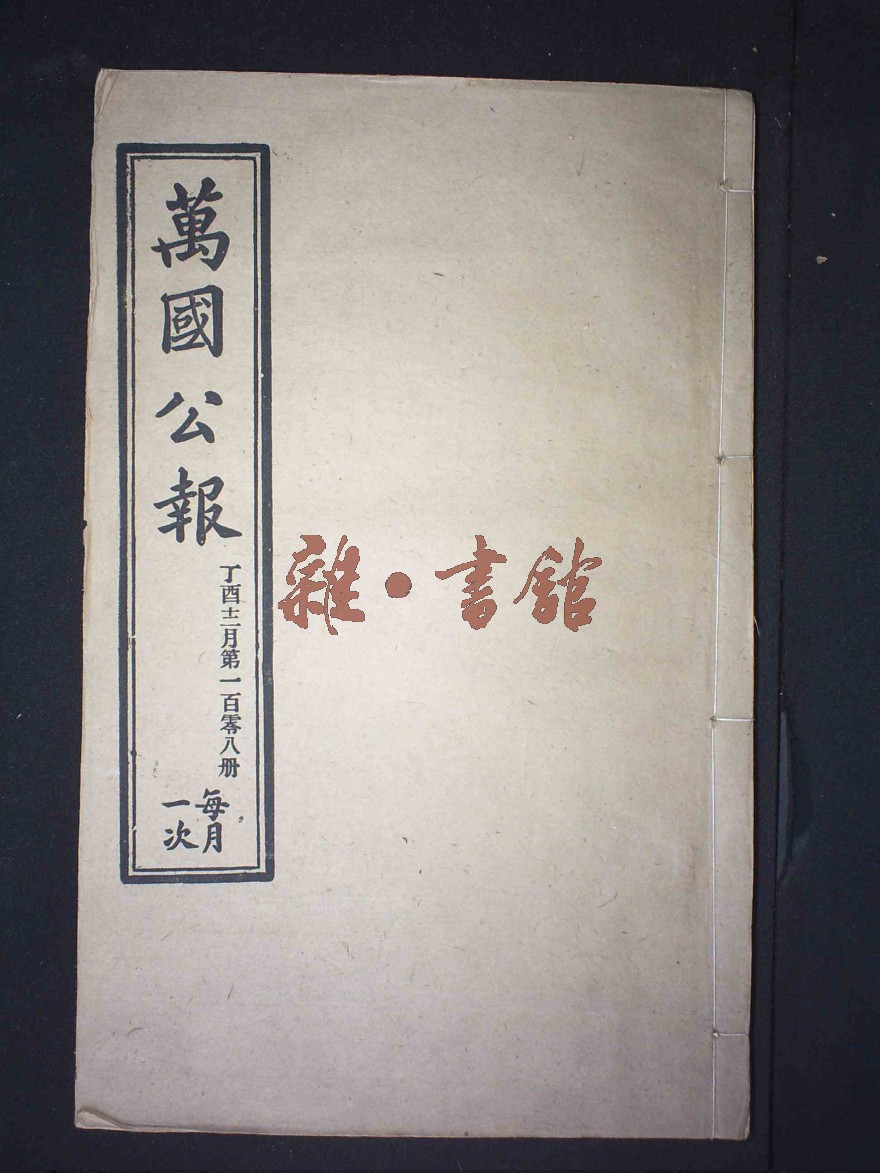 萬國公報
丁酉十二月第一百零八册
每月
一次
雜·書舘